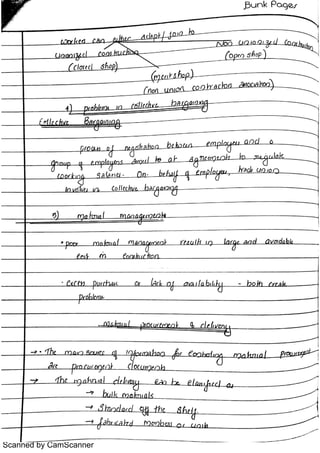 Bunk Pages
worker can either adapt / join to
Unionized construction
Non unionized construction
(closed shop)
(open shop)
(merit shop)
(non union contractors association)
4) problem in collective bargaining
Collective Bargaining
process of negotiation between employees and a
group of employers aimed to at agreements to regulate
working salaries. On behalf of employees, trade union
involves in collective bargaining
5) material management
• poor material management result in large and avoidable
cost in construction
- Excess purchase or lack of availability - both create
problems
material procurement & delivery
→ • The main source of information for controlling material procurement
are procurement documents
→ The material delivery can be classified as
→ bulk materials
→ standard off the shelf
→ fabricated members or units
Scanned by CamScanner